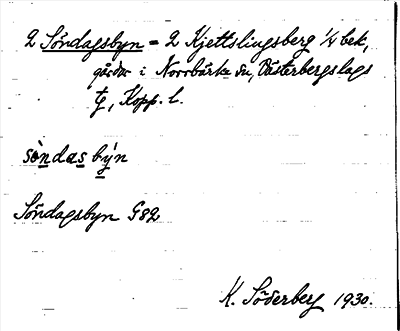 2 Söndagsbyn = 2 Kjettslingsberg 1/4 bek,
gårdar i Norrbärke sn, Västerbergslags
tg, Kopp. l.
sòndas by̆n
Söndagsbyn G82
K. Söderberg 1930.